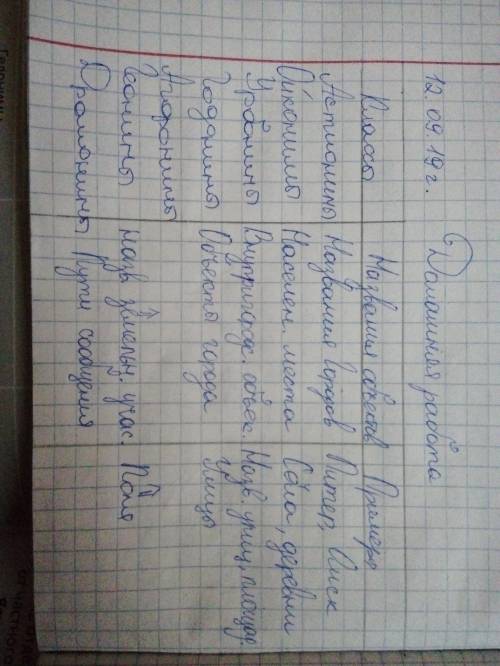 12.09.19г.
Домашняя работа
Классы Названия объектов Примеры
Астионимы Названия городов Питер,
Ойконимы Населен. места Сёла, деревни
Урбанимы Внутригород. объек. Назв. улиц, площад.
Годонимы Объекты города Улицы
Агоронимы
Геонимы назв. земельн. учас. Поля
Дромонимы Пути сообщения